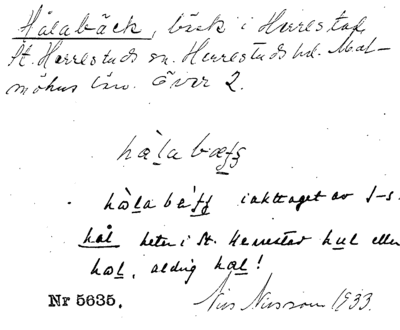 Hålabäck, bäck i Herrestad,
St. Herrestads sn. Herrestads hd. Mal-
möhus län. Över 2.
hàla bæʃʃ
hàla bǽʃʃ iakttaget av I-s.
hål heter i St. Herrestad hul eller
hol, aldrig hal!
Nr 5635. Nils Nilsson 1933.